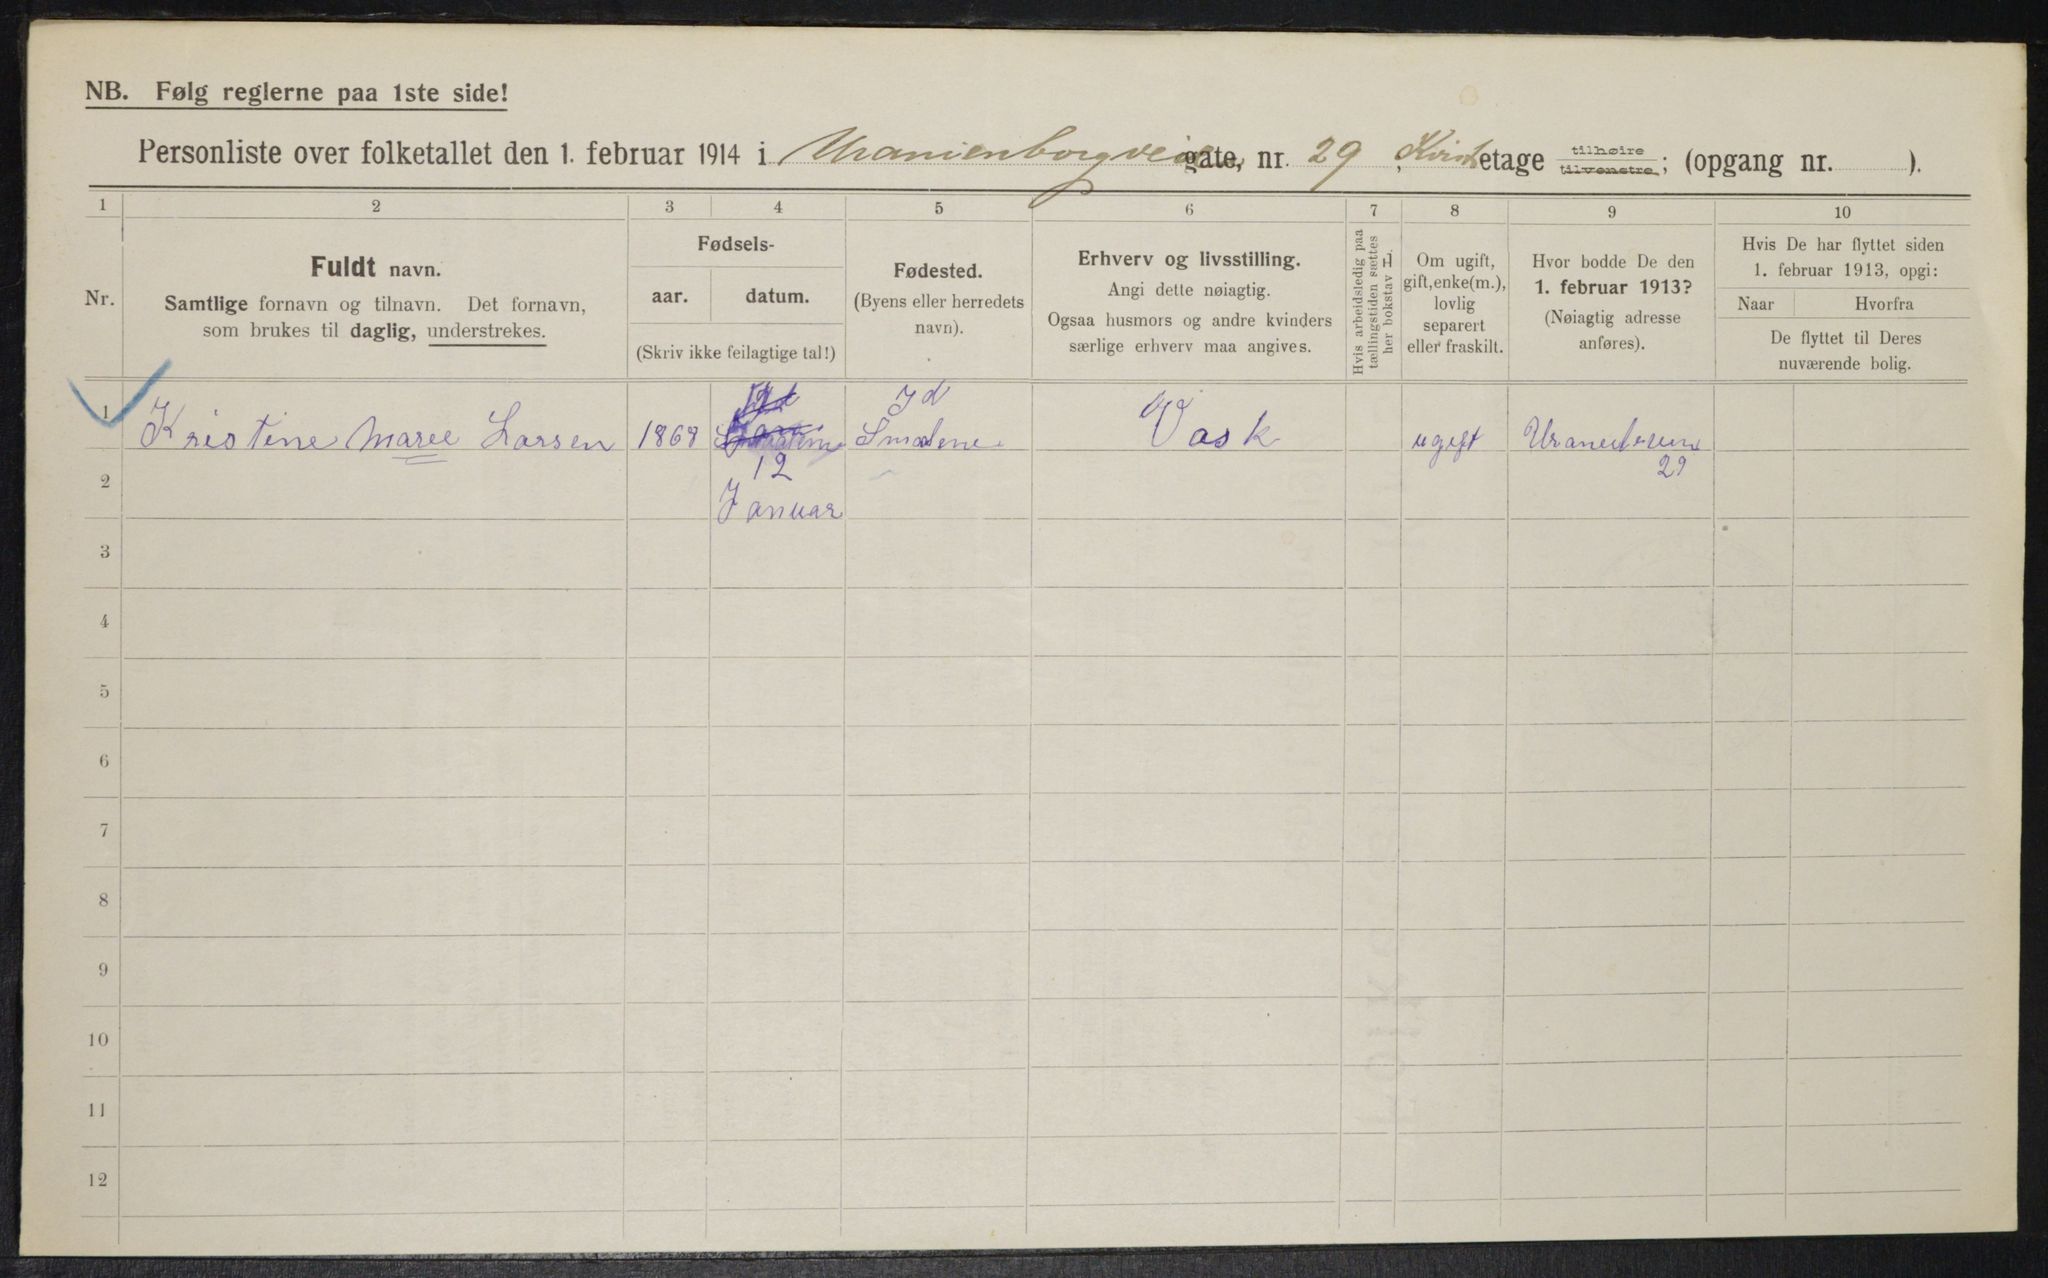 NB. Følg reglerne paa 1ste side!
Personliste over folketallet den 1. februar 1914 i Uranienborgveien gate, nr. 29, Kvist etage tilhøire tilvenstre; (opgang nr. ).
1 2 3 4 5 6 7 8 9 10
Nr.
Fuldt navn.
Samtlige fornavn og tilnavn. Det fornavn,
som brukes til daglig, understrekes.
Fødsels-
aar. datum.
(Skriv ikke feilagtige tal!)
Fødested.
(Byens eller herredets
navn).
Erhverv og livsstilling.
Angi dette nøiagtig.
Ogsaa husmors og andre kvinders
særlige erhverv maa angives.
Hvis arbeidsledig paa
tællingstiden sættes
her bokstav L
Om ugift,
gift, enke(m.),
lovlig
separert
eller fraskilt.
Hvor bodde De den
1. februar 1913?
(Nøiagtig adresse
anføres).
Hvis De har flyttet siden
1. februar 1913, opgi:
Naar Hvorfra
De flyttet til Deres
nuværende bolig.
Id
1 Kristine Maree Larsen 1868 Smalene Vask ugift
12 29
2
Januar
3
4
5
6
7
8
9
10
11
12